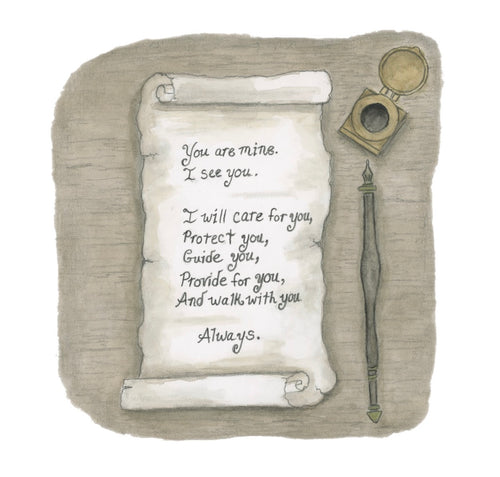 You are mine.
I see you.
I will care for you,
Protect you,
Guide you,
Provide for you,
And walk with you
Always.